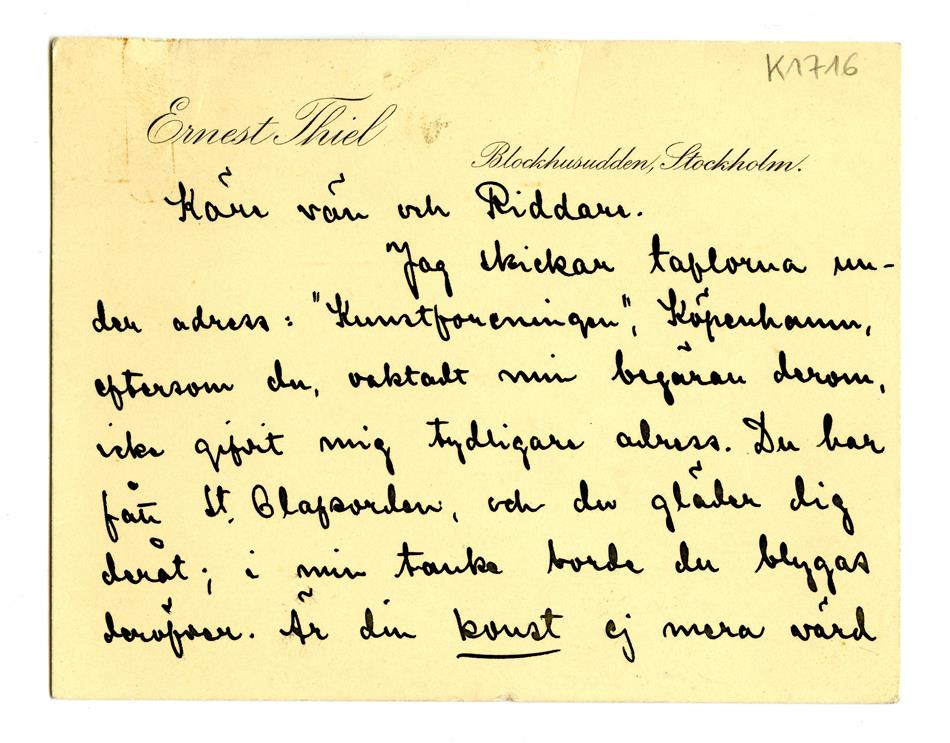 K1716
Ernest Thiel
Blockhusudden, Stockholm.
Käre vän och Riddare.
Jag skickar taflorna un-
der adress: "Kunstforeningen", Köpenhamn,
eftersom du, oaktadt min begäran derom,
icke gifvit mig tydligare adress. Du har
fått St. Olafsorden, och du gläder dig
deråt; i min tanke borde du blygas
deröfver. Är din konst ej mera värd